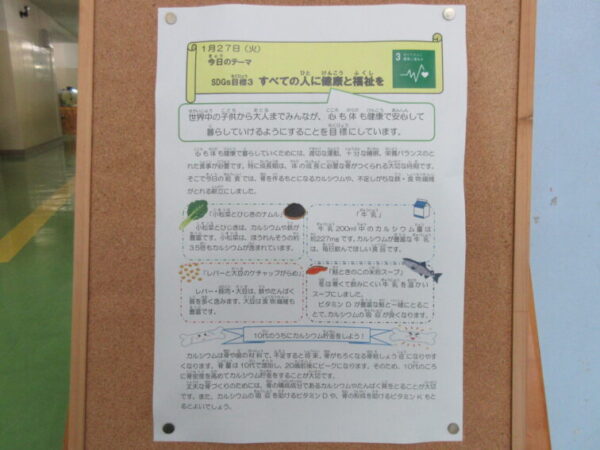 1月27日（火）
今日のテーマ
SDGs目標3 すべての人に健康と福祉を
3
世界中の子供から大人までみんなが、心も体も健康で安心して
暮らしていけるようにすることを目標にしています。
心も体も健康で暮らしていくためには、適切な運動、十分な睡眠、栄養バランスのと
れた食事が必要です。特に成長期は、体の成長に必要な骨がつくられる大切な時期です。
そこで今日の給食では、骨を作るもとになるカルシウムや、不足しがちな鉄・食物繊維
がとれる献立にしました。
「小松菜とひじきのナムル」
小松菜とひじきは、カルシウムや鉄が
豊富です。小松菜は、ほうれんそうの約
3.5倍もカルシウムが含まれています。
「牛乳」
牛乳200ml中のカルシウム量は
約227mgです。カルシウムが豊富な牛乳
は、毎日飲んでほしい食品です。
「レバーと大豆のケチャップがらめ」
レバー・豚肉・大豆は、鉄やたんぱく
質を多く含みます。大豆は食物繊維も
豊富です。
「鮭ときのこの米粉スープ」
冬は寒くて飲みにくい牛乳を温かい
スープにしました。
ビタミンDが豊富な鮭と一緒にとるこ
とで、カルシウムの吸収が良くなります。
10代のうちにカルシウム貯金をしよう！
カルシウムは骨や歯の材料で、不足すると将来、骨がもろくなる骨粗しょう症になりやす
くなります。骨量は10代で増加し、20歳前後にピークになります。そのため、10代のころに
骨密度を高めてカルシウム貯金をすることが大切です。
丈夫な骨づくりのためには、骨の構成成分であるカルシウムやたんぱく質をとることが大切
です。また、カルシウムの吸収を助けるビタミンDや、骨の形成を助けるビタミンKもと
るとよいでしょう。